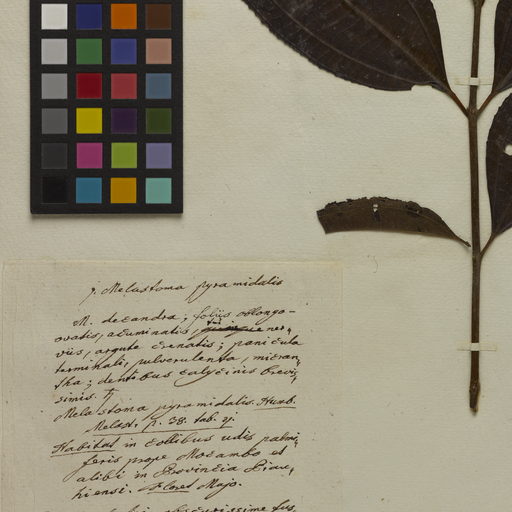 7. Melastoma pyramidalis
M. decandra; foliis oblongo-
ovatis, acuminatis, ner-
viis, argute crenatis; panicula
terminali, pulverulenta, micran-
tha; dentibus calycinis brevis-
simis. ♄
Melastoma pyramidalis. Humb.
Melast. p. 38. tab.
Habitat in collibus udis palmi-
feris prope Mocambo et
alibi in Provincia Piau-
hiensi. Floret Majo.
obscurissime fus